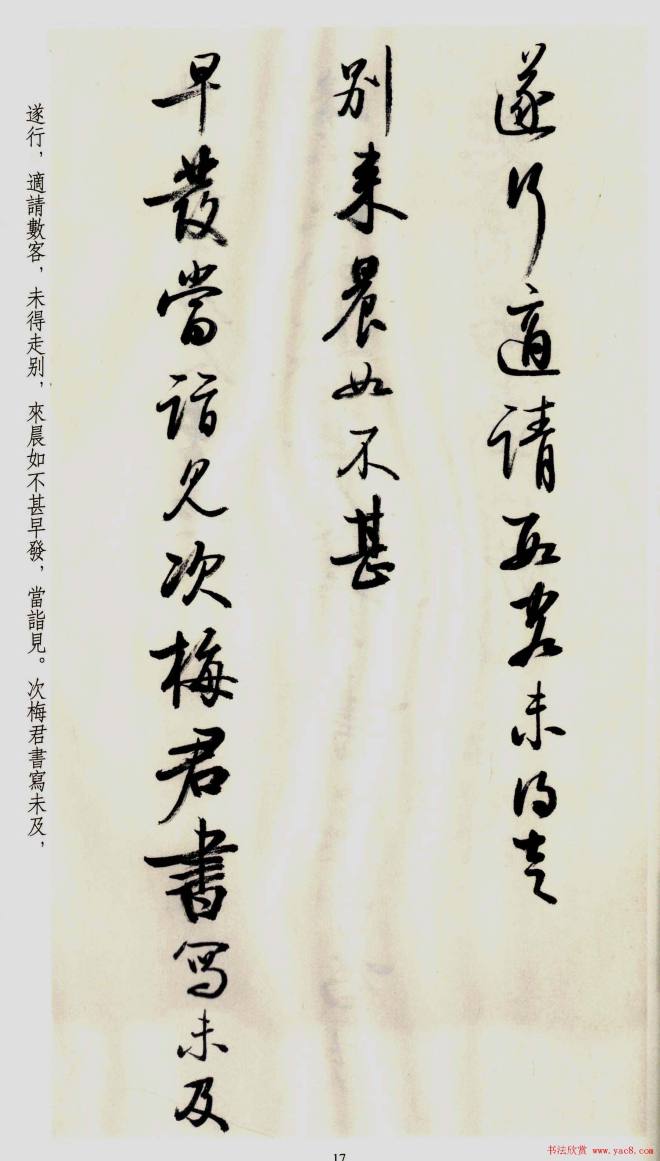 遂行適請數客未得走
別來晨如不甚
早發當詣見次梅君書寫未及
遂行，適請數客，未得走別，來晨如不甚早發，當詣見。次梅君書寫未及，
17
书法欣赏 www.yac8.com